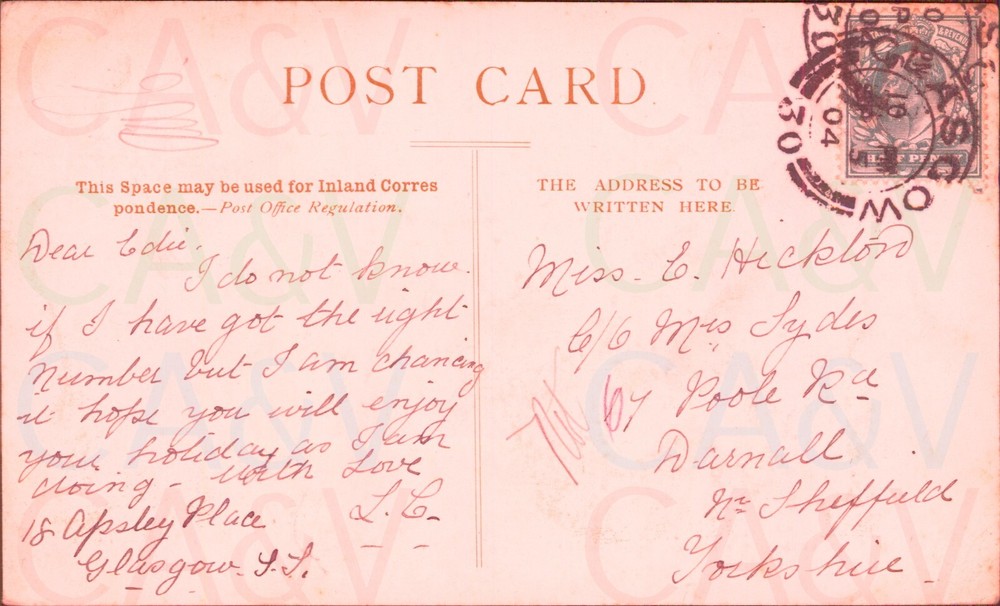 POST CARD
This Space may be used for Inland Corres
pondence.—Post Office Regulation.
THE ADDRESS TO BE
WRITTEN HERE.
Dear Edie.
I do not know
if I have got the right
number but I am chancing
it hope you will enjoy
your holiday as I am
doing - With Love
L.C.
18 Apsley Place
Glasgow. S.S.
Miss. E. Hickford
C/o Mrs Sydes
67 Poole Rd
Darnall
Nr Sheffield
Yorkshire
GLASGOW
04
30
HALF PENNY
& REVENUE
CA&V